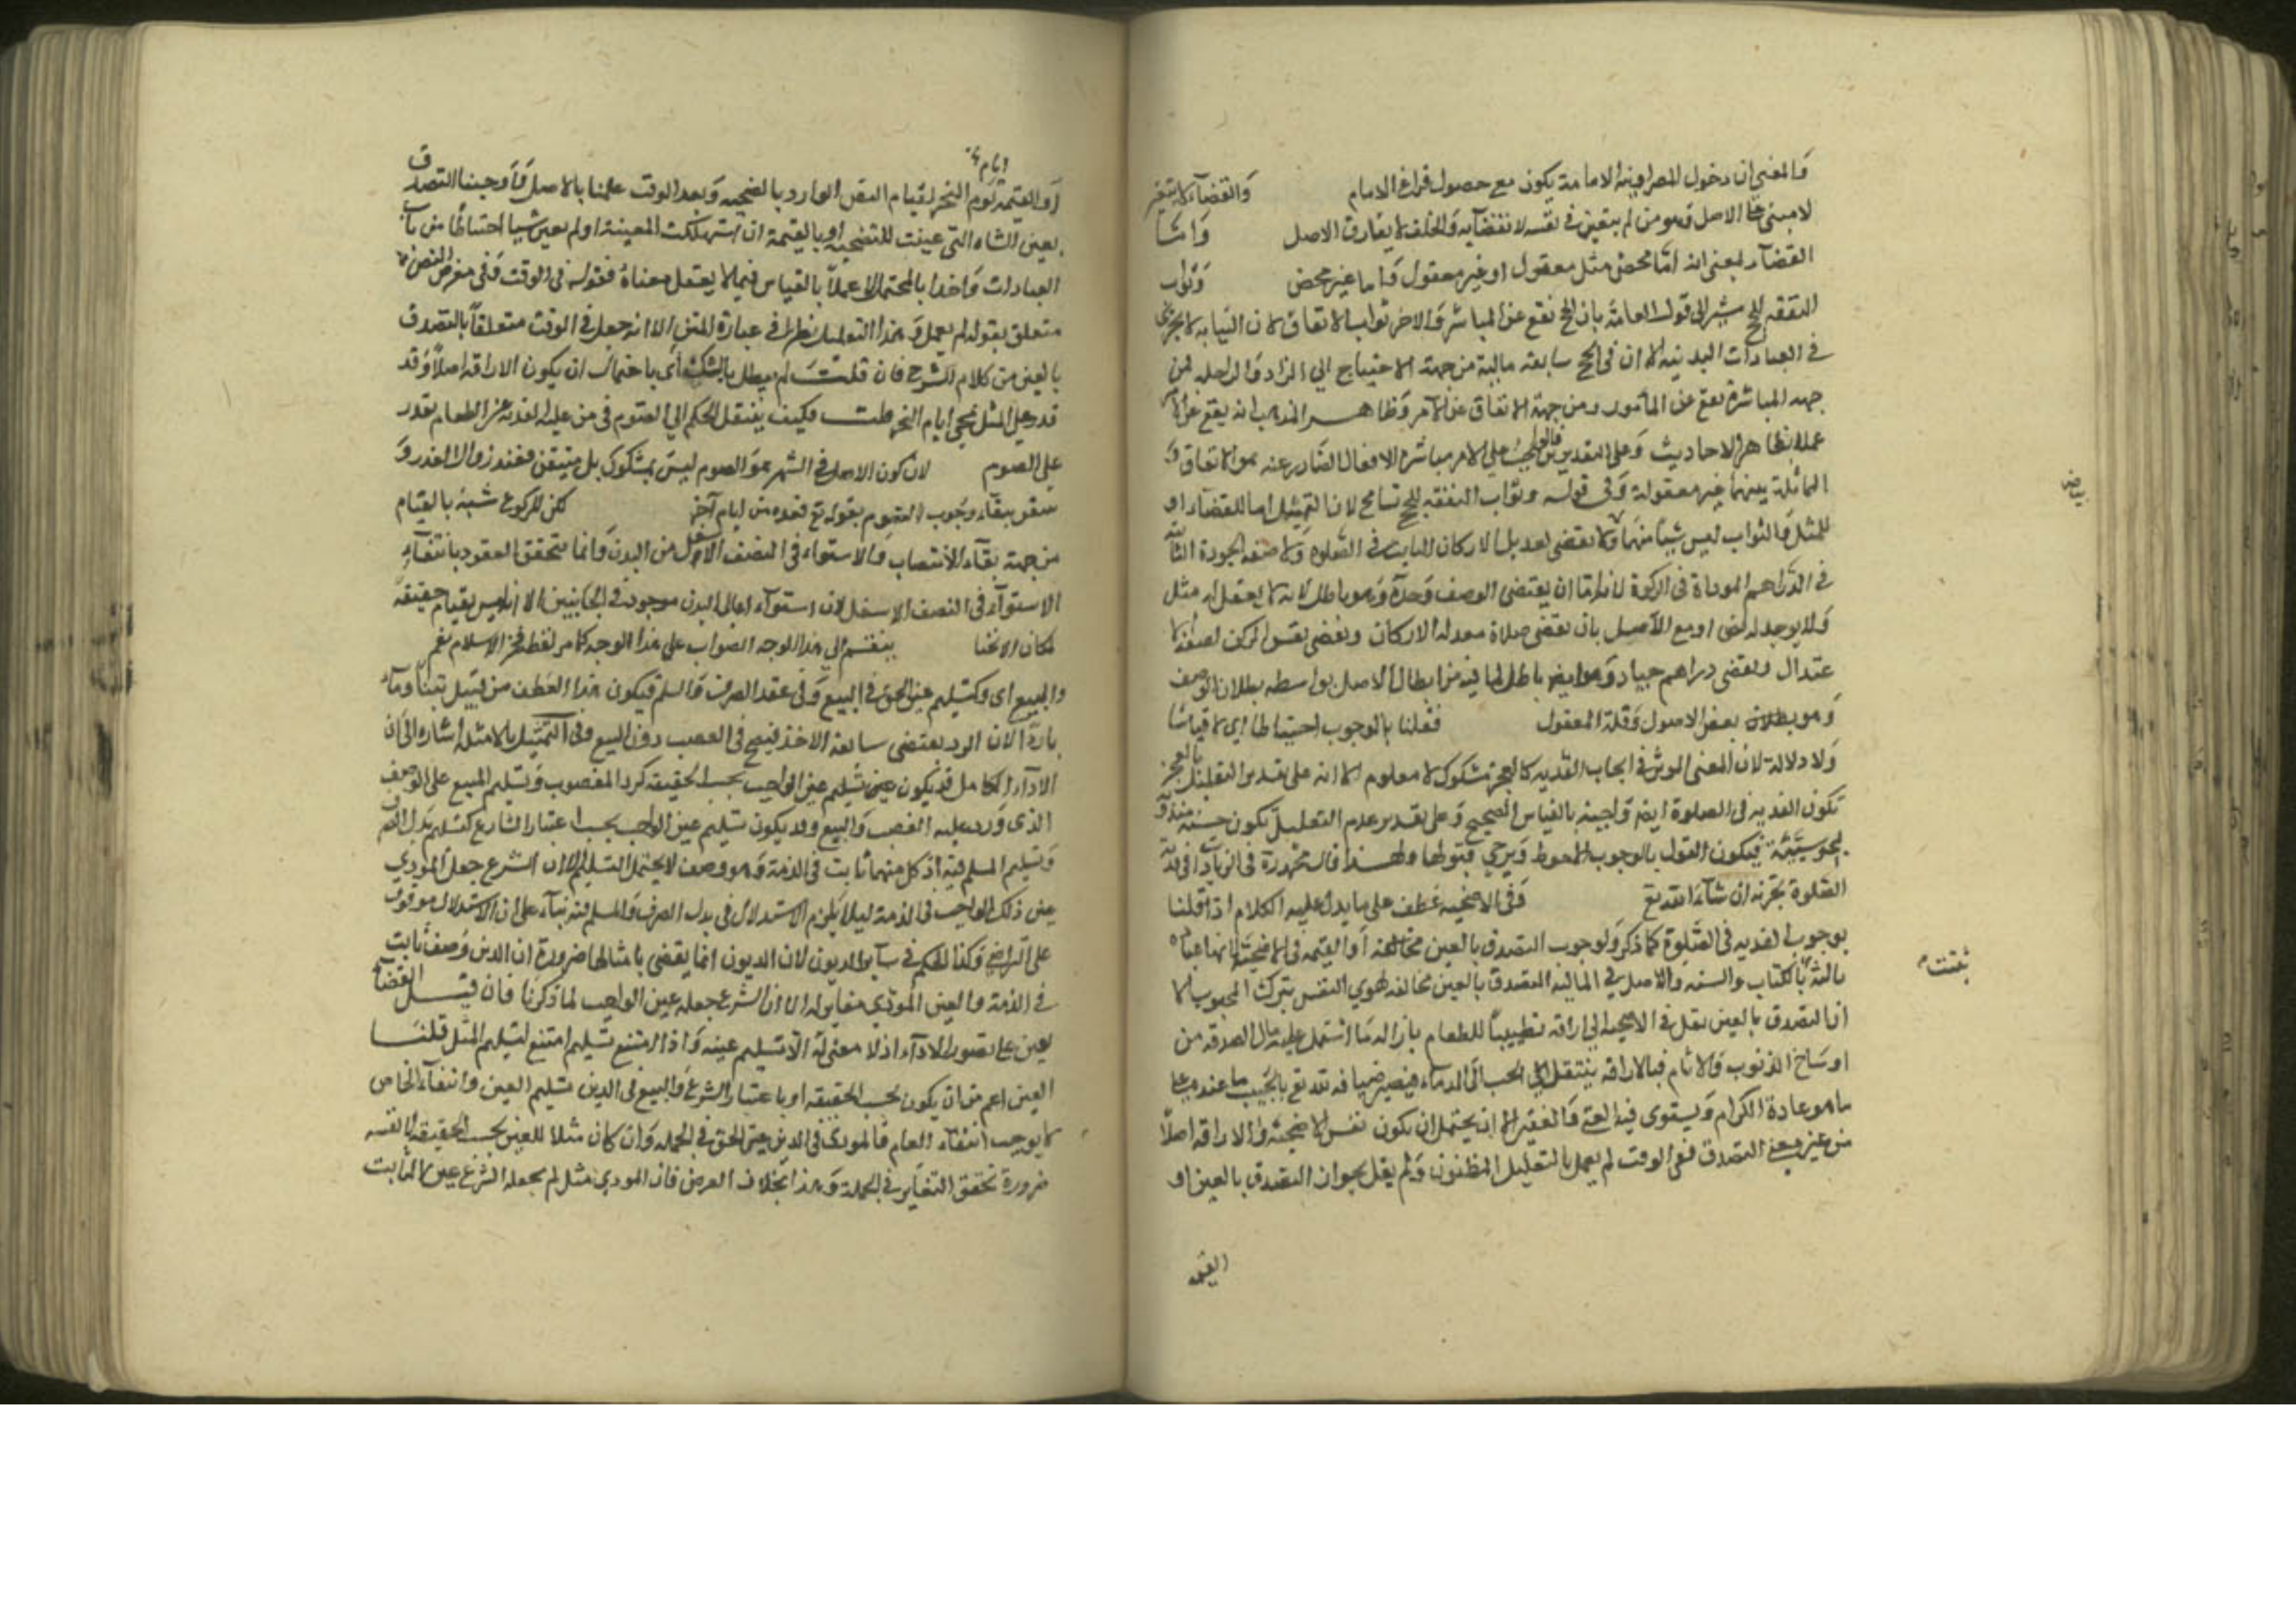 والمعنى ان دخول المصر او نية الاقامة يكون مع حصول فراغ الامام والقضاء لا يتغير
لا مبنى على الاصل وهو من لم يتعين في نفسه لا نقضائه والخلف لا يفارق الاصل واما
القضاء يعني انه اما محض مثل معقول او غير معقول واما غير محض وثواب
النفقة للحج يشير الى قول العامة بان الحج تقع عن المباشر وللآخر ثواب الانفاق لان النيابة لا تجزئ
في العبادات البدنية الا ان في الحج سابعة مالية من جهة الاحتياج الى الزاد والراحلة فمن
جهة المباشرة تقع عن المأمور ومن جهة الانفاق عن الآمر وظاهر المذهب انه يقع عن الآمر
عملا بظاهر الاحاديث وعلى التقديرين فالواجب على الآمر مباشرة الافعال الصادر عنه هو الانفاق و
المماثلة بينهما غير معقولة وفي قوله وثواب النفقة للحج تسامح لانا لتمثيل اما للقضاء او
للمثل والثواب ليس شيئا منهما ولا تقضى تعديل الاركان الفايت في الصلوة ولا صفة الجودة الفائتة
في الدراهم المؤداة في الزكوة لانه اما ان يقتضى الوصف وحده وهو باطل لانه لا يعقل له مثل
ولا يوجد له نص او مع الاصل بان تقضى صلاة معدلة الاركان ونقضى نفس الركن لصفة الا
عتدال ونقضى دراهم جياد وهو ايضا باطل لما فيه من ابطال الاصل بواسطة بطلان الوصف
وهو بطلان بعض الاصول وقلة المعقول فقلنا بالوجوب احتياطا اي لا قياسا
ولا دلالة لان المعنى المؤثر في ايجاب الفدية كالعجز مشكوك لا معلوم الا انه على تقدير التعليل بالعجز
تكون الفدية في الصلوة ايضا واجبة بالقياس الصحيح وعلى تقدير عدم التعليل تكون حسنة مندوبة
تمحو سيئة فيكون القول بالوجوب احوط ويرجى قبولها ولهذا قال محمد ره في الزيادات في فدية
الصلوة تجزئه ان شاء الله تع وفي الاضحية عطف على ما يدل عليه الكلام اذا قلنا
بوجوب الفدية في الصلوة كما ذكر ولوجوب التصدق بالعين او القيمة في الاضحية لانها عباده
ثابتة بالكتاب والسنة والاصل في المالية التصدق بالعين مخالفة لهوى النفس بترك المحبوب الا
ان التصدق بالعين نقل في الاضحية الى اراقة تطييبا للطعام بازالة ما اشتمل عليه مال الصدقة من
اوساخ الذنوب والآثام فبالاراقة ينتقل الخبث الى الدماء فيصير ضيافة الله تع باطيب ما عنده على
ما هو عادة الكرام ويستوى فيه الغني والفقير الا انه يحتمل ان يكون نفس الاضحية والاراقة اصلا
من غير معنى التصدق ففي الوقت لم يعمل بالتعليل المظنون ولم يقل بجواز التصدق بالعين او
القيمة
بياض
ثبتت
ايام
او القيمة يوم النحر لقيام النص الوارد بالتضحية وبعد الوقت عملنا بالاصل واوجبنا التصدق
بعين الشاة التي عينت للتضحية او بالقيمة ان استهلكت المعينة او لم يعين شيا احتياطا من باب
العبادات واخذا بالمحتمل لا عملا بالقياس فيما لا يعقل معناه فقوله في الوقت وفي معرض النص
متعلق بقوله لم يعمل وهذا التعليل نظرا في عبارة المتن الا انه جعل في الوقت متعلقا بالتصدق
بالعين من كلام الشرح فان قلت لم يبطل بالشك اى باحتمال ان يكون الاراقة اصلا وقد
قدر على المثل بمجئ ايام النحر قلت فكيف ينتقل الحكم الى الصوم في من عليه الفدية عن الطعام بقدر
على الصوم لان كون الاصل في الشهر هو الصوم ليس بمشكوك بل متيقن فعند زوال العذر و
تيقن ببقاء وجوب الصوم بقوله تع فعدة من ايام آخر لكن للركوع شبه بالقيام
من جهة بقاء الانتصاب والاستواء في النصف الاسفل من البدن وانما يتحقق القعود بانتفاء
الاستواء في النصف الاسفل لان استواء اعالى البدن موجود في الجانبين الا انه ليس بقيام حقيقة
لمكان الانحنا ينقسم الى هذا الوجه الصواب على هذا الوجه كما مر لفظ فخر الاسلام نعم
والبيع اى وكتسليم عين الحق في البيع وفي عقد الصرف والسلم فيكون هذا العطف من قبيل تبنا وماء
باردا لان الرد يقتضى سابقة الاخذ فيصح في الغصب دون البيع وفي التمثيل بالامثلة اشارة الى ان
الاداء الكامل قد يكون تسليم عين الواجب بحسب الحقيقة كرد المغصوب وتسليم المبيع على الوصف
الذى ورد عليه الغصب والبيع وقد يكون تسليم عين الواجب بحسب اعتبار الشارع كتسليم بدل الصرف
وتسليم المسلم فيه اذ كل منهما ثابت في الذمة وهو وصف لا يحتمل التسليم الا ان الشرع جعل المؤدى
عين ذلك الواجب في الذمة ليلا يلزم الاستبدال في بدل الصرف والمسلم فيه بناء على ان الاستبدال موقوف
على التراضي وكذا الحكم في سائر الديون لان الديون انما يقضى بامثالها ضرورة ان الدين وصف ثابت
في الذمة والعين المؤدى مغايرة له الا ان الشرع جعله عين الواجب لما ذكرنا فان قيل القضاء
يعين على تصور الاداء اذ لا معنى له الا تسليم عينه واذا امتنع تسليم امتنع تسليم المثل قلنا
العين اعم من ان يكون بحسب الحقيقة او باعتبار الشرع والبيع في الدين تسليم العين وانتفاء الخاص
لا يوجب انتفاء العام فالمودى في الدين عين الحق في الجملة وان كان مثلا للعين بحسب الحقيقة لا نفسه
ضرورة تحقق التغاير في الجملة وهذا بخلاف القرض فان المودى مثل لم يجعله الشرع عين الثابت